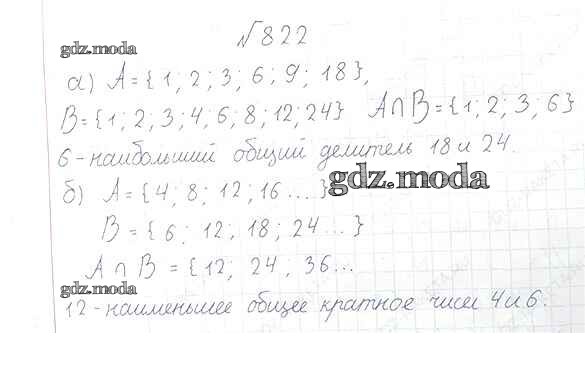 №822
gdz.moda
а) А={1; 2; 3; 6; 9; 18},
В={1; 2; 3; 4; 6; 8; 12; 24} А∩В={1; 2; 3; 6}
6-наибольший общий делитель 18 и 24.
gdz.moda
б) А={4; 8; 12; 16 ....}
В={6; 12; 18; 24 ...}
А∩В={12; 24; 36...
gdz.moda
12-наименьшее общее кратное чисел 4 и 6.